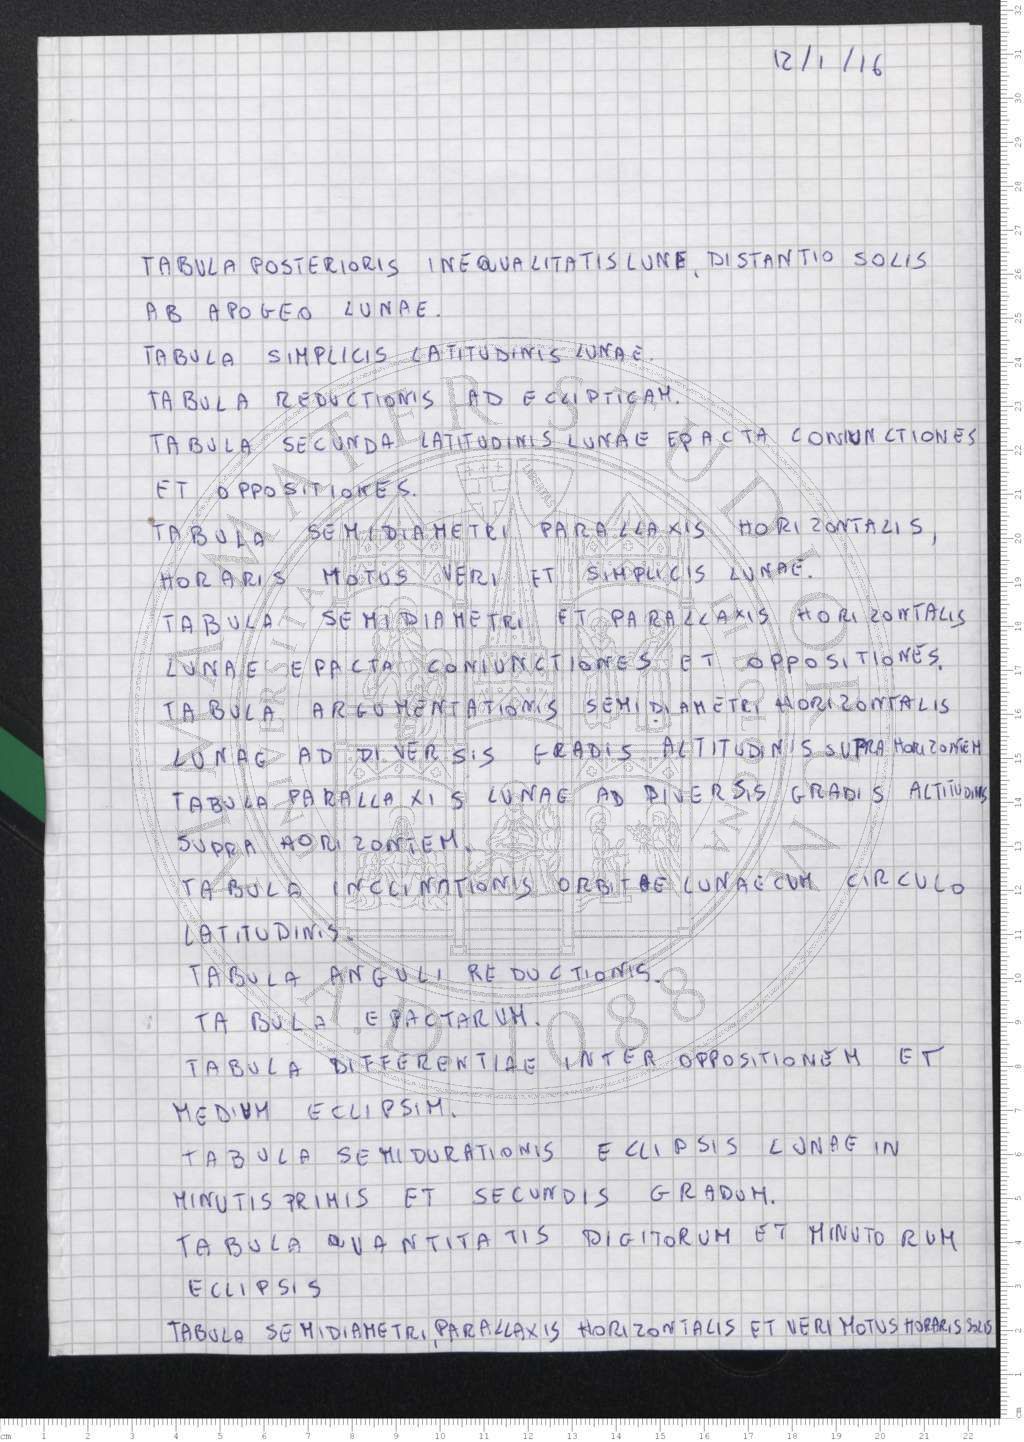 12/1/16
TABULA POSTERIORIS INEQUALITATIS LUNE, DISTANTIO SOLIS
AB APOGEO LUNAE.
TABULA SIMPLICIS LATITUDINIS LUNAE.
TABULA REDUCTIONIS AD ECLIPTICAM.
TABULA SECUNDA LATITUDINIS LUNAE EPACTA CONIUNCTIONES
ET OPPOSITIONES.
TABULA SEMIDIAMETRI PARALLAXIS HORIZONTALIS,
HORARIS MOTUS VERI ET SIMPLICIS LUNAE.
TABULA SEMIDIAMETRI ET PARALLAXIS HORIZONTALIS
LUNAE EPACTA CONIUNCTIONES ET OPPOSITIONES.
TABULA ARGUMENTATIONIS SEMIDIAMETRI HORIZONTALIS
LUNAE AD DIVERSIS GRADIS ALTITUDINIS SUPRA HORIZONTEM
TABULA PARALLAXIS LUNAE AD DIVERSIS GRADIS ALTITUDINIS
SUPRA HORIZONTEM.
TABULA INCLINATIONIS ORBITAE LUNAE CUM CIRCULO
LATITUDINIS.
TABULA ANGULI REDUCTIONIS.
TABULA EPACTARUM.
TABULA DIFFERENTIAE INTER OPPOSITIONEM ET
MEDIUM ECLIPSIM.
TABULA SEMIDURATIONIS ECLIPSIS LUNAE IN
MINUTIS PRIMIS ET SECUNDIS GRADUM.
TABULA QUANTITATIS DIGITORUM ET MINUTORUM
ECLIPSIS
TABULA SEMIDIAMETRI, PARALLAXIS HORIZONTALIS ET VERI MOTUS HORARIS SOLIS